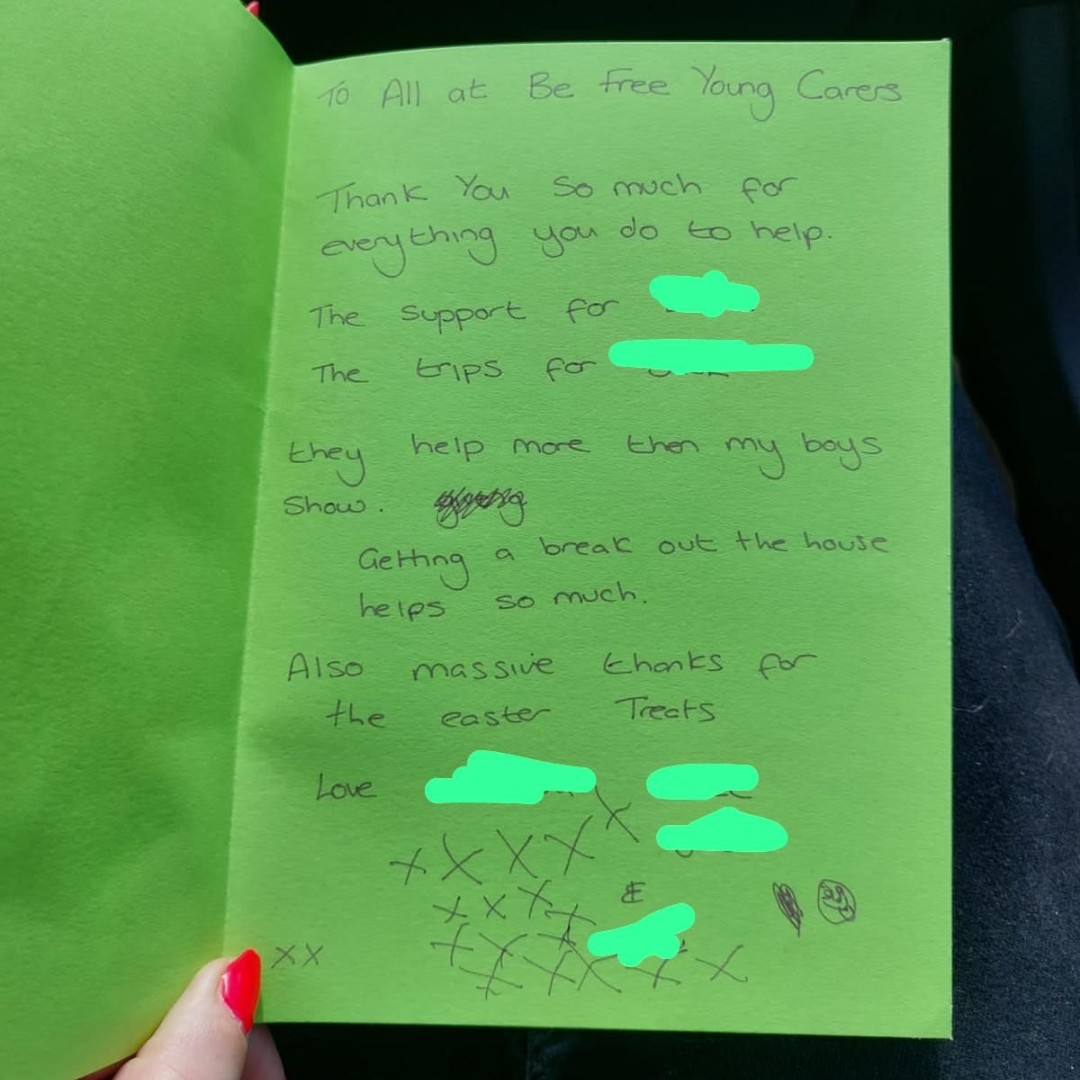 To All at Be Free Young Carers
Thank You so much for
everything you do to help.
The support for
The trips for
they help more then my boys
show.
Getting a break out the house
helps so much.
Also massive thanks for
the easter Treats
Love
X
X X X X
&
X X X X
X X X X
X X X X X
X X